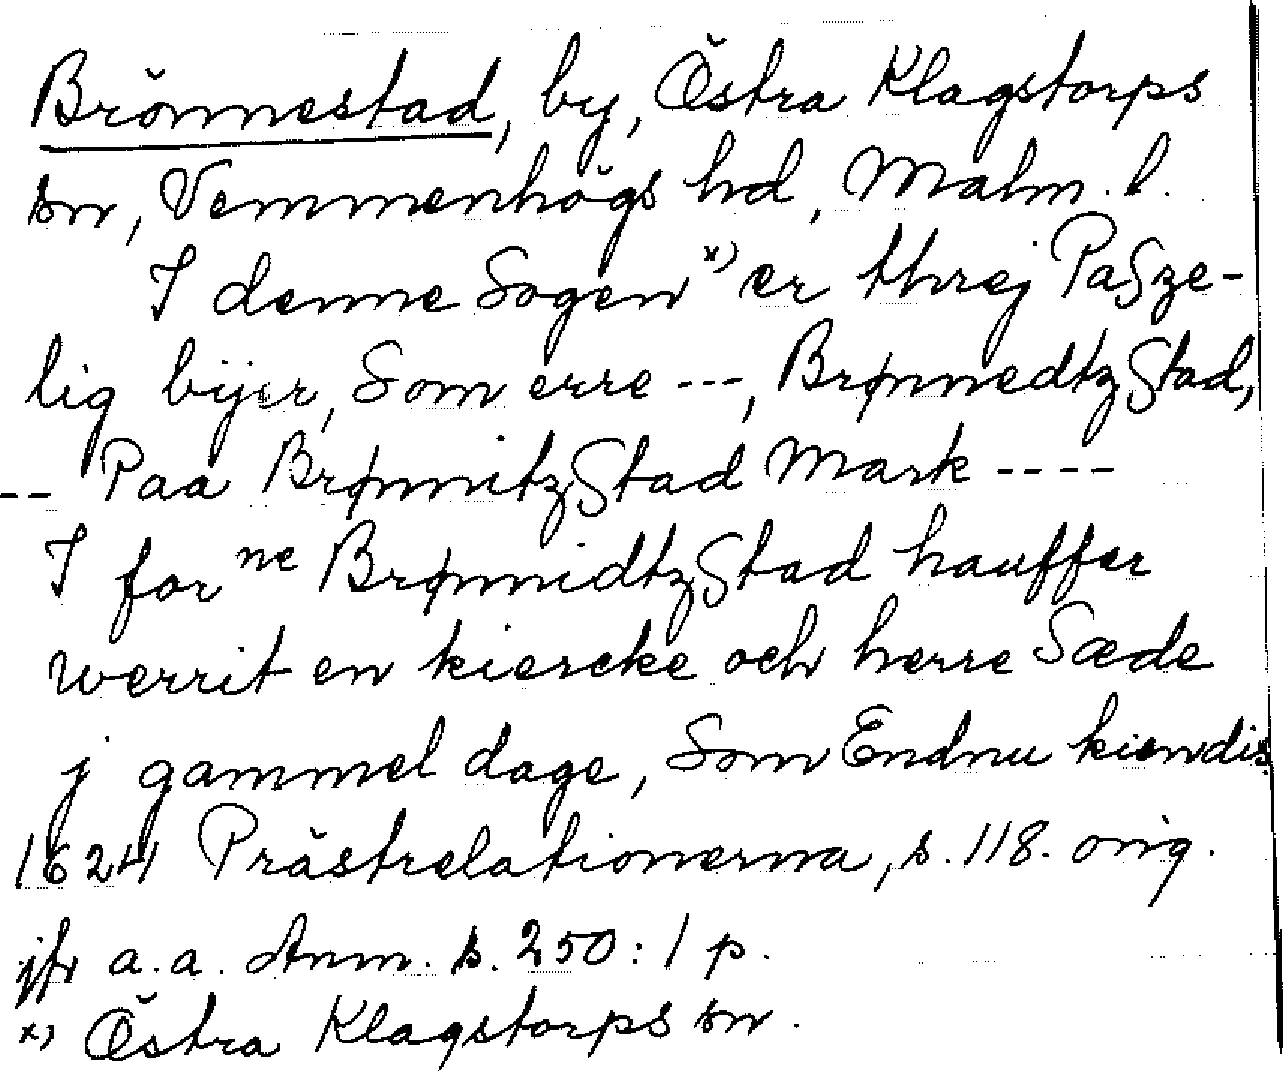 Brönnestad, by, Östra Klagstorps
sn, Vemmenhögs hd, Malm. l.
I denne Sogen *) er threj PaSze-
lig bijer, Som erre ---, BrønnedtzStad,
-- Paa BrønnitzStad Mark ----
I forne BrønnidtzStad hauffer
werrit en kiercke och herre Sæde
j gammel dage, Som Endnu kiendis
1624 Prästrelationerna, s. 118. orig.
jfr a.a. Anm. s. 250: 1 p.
*) Östra Klagstorps sn.